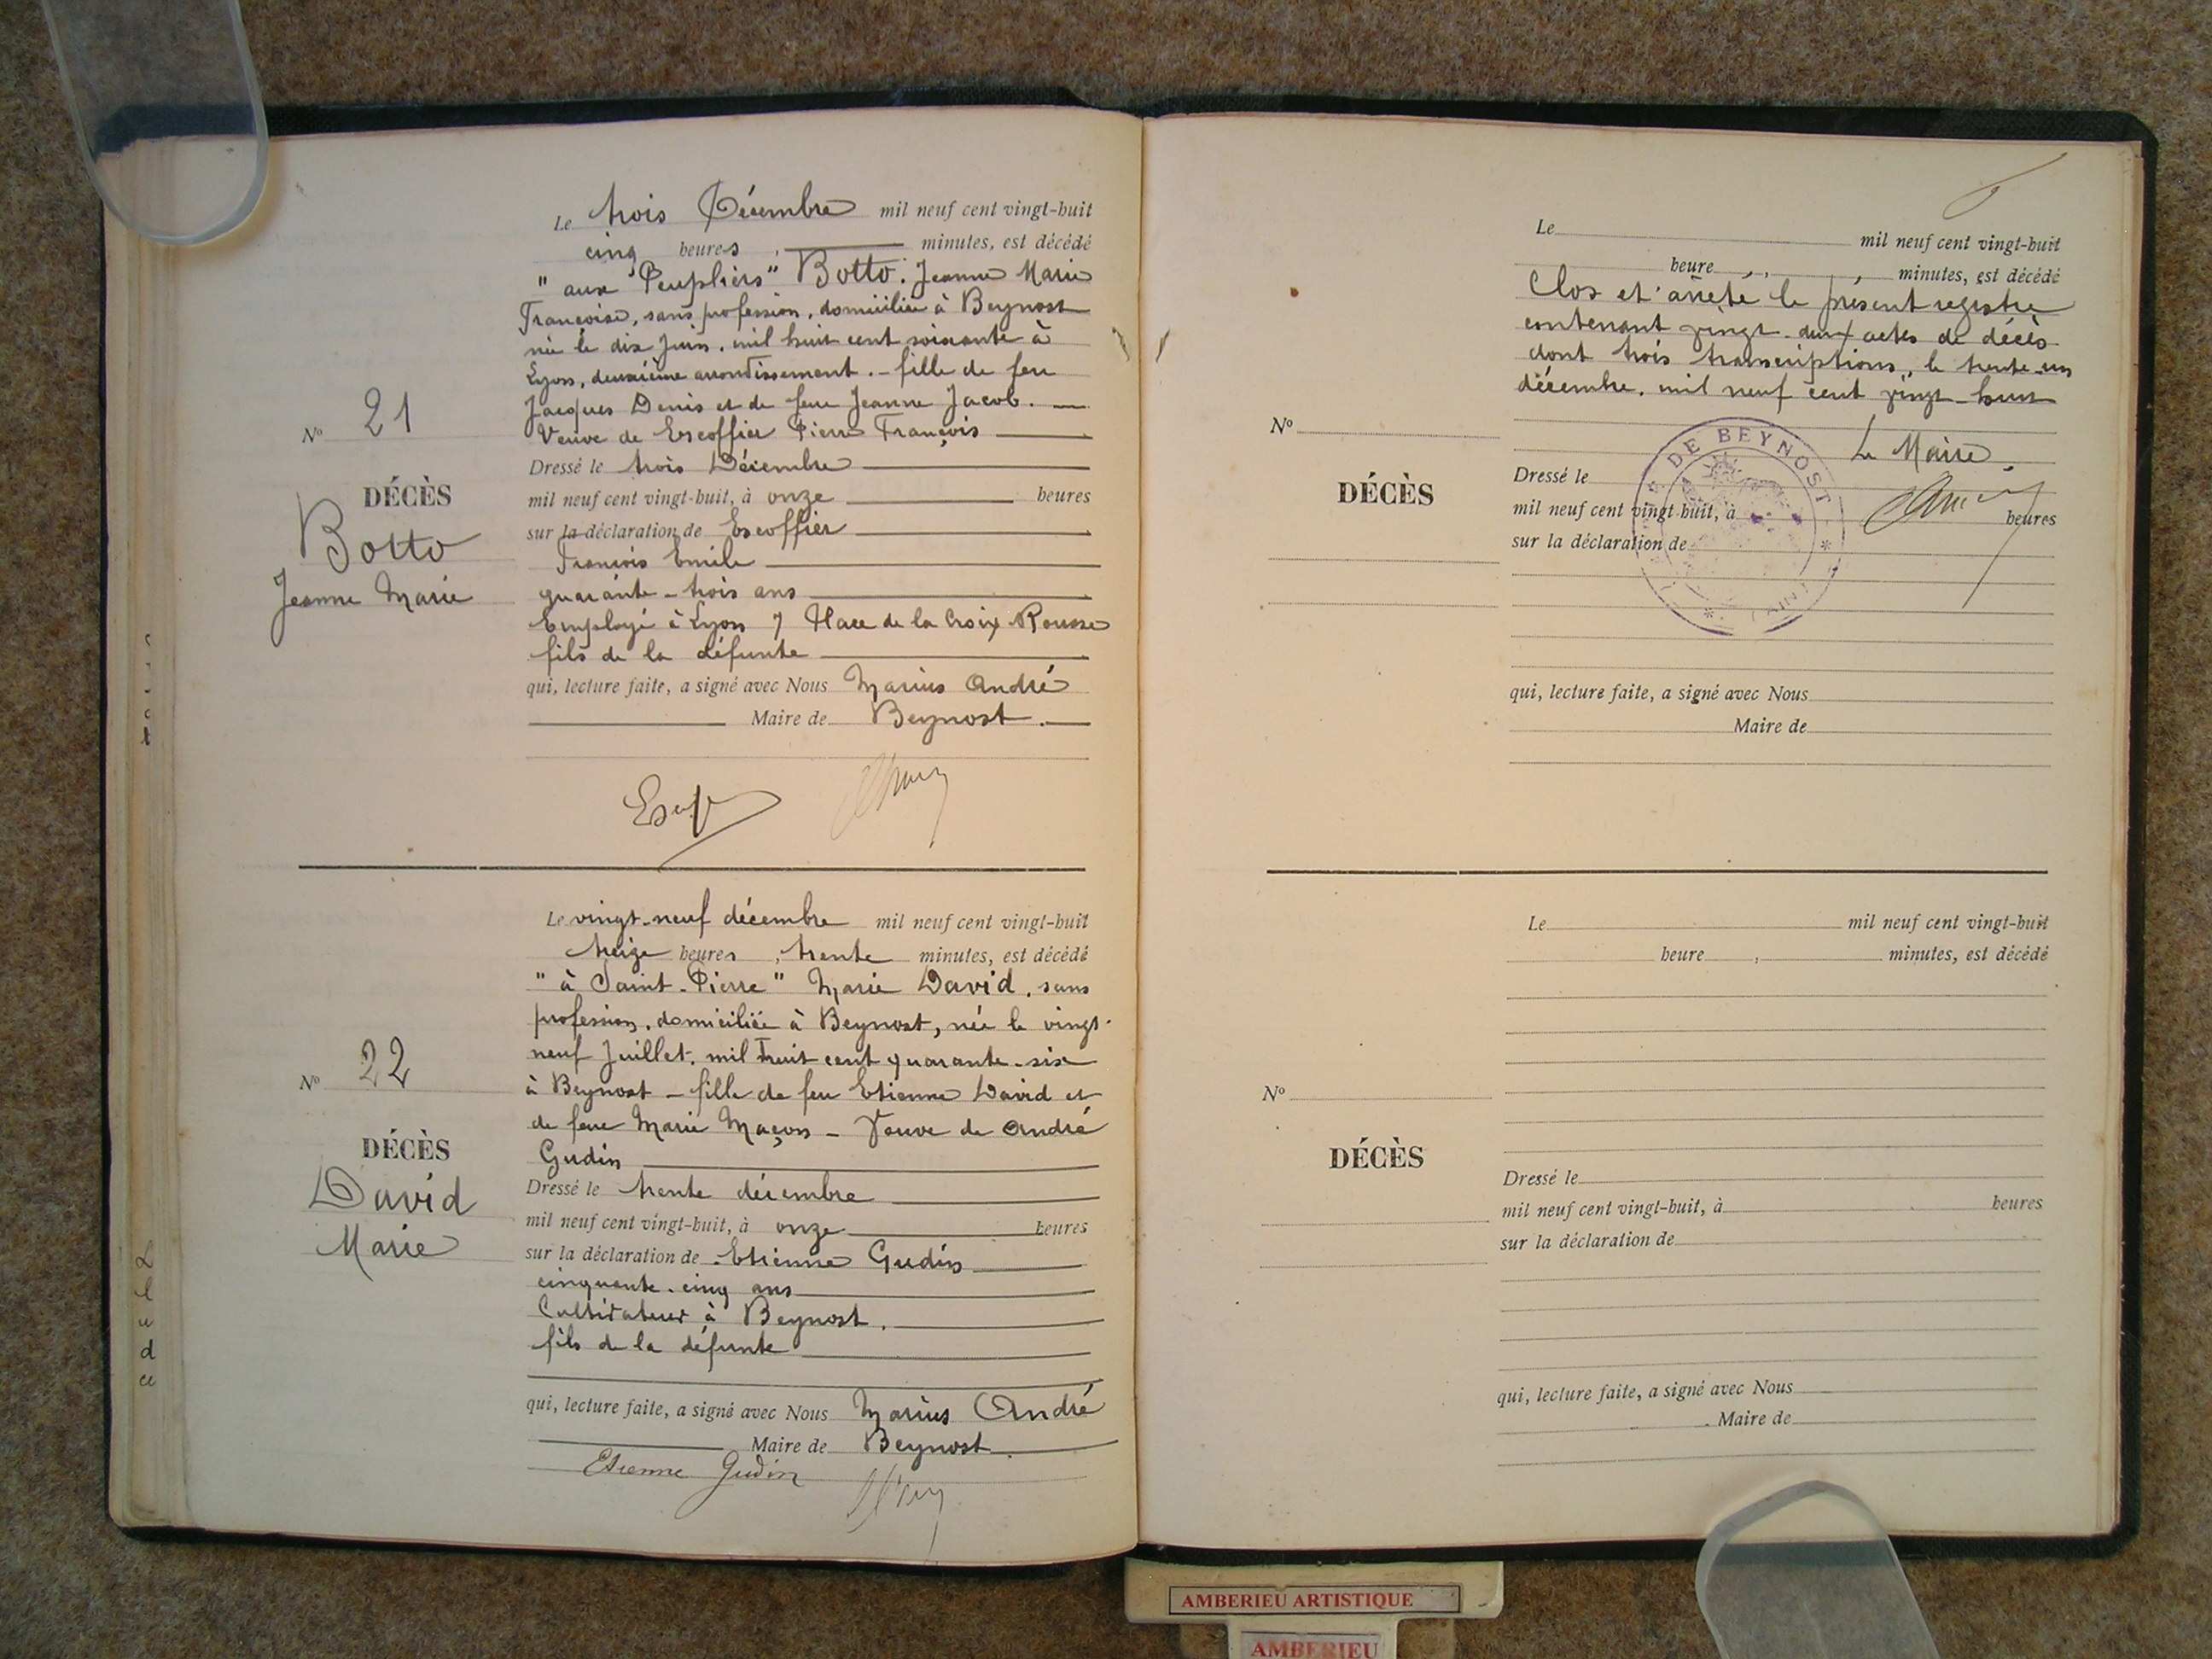 Le trois Décembre mil neuf cent vingt-huit
cinq heures, minutes, est décédé
" aux Peupliers" Botto. Jeanne Marie
Françoise, sans profession, domiciliée à Beynost
née le dix Juin. mil huit cent soixante à
Lyon, deuxième arrondissement. - fille de feu
Jacques Denis et de feue Jeanne Jacob.
Veuve de Escoffier Pierre François
Nº 21
DÉCÈS
Botto
Jeanne Marie
Dressé le trois Décembre
mil neuf cent vingt-huit, à onze heures
sur la déclaration de Escoffier
François Emile
quarante-trois ans
Employé à Lyon 7 Place de la Croix Rousse
fils de la défunte
qui, lecture faite, a signé avec Nous Marius André
Maire de Beynost.
Le vingt-neuf décembre mil neuf cent vingt-huit
treize heures, trente minutes, est décédé
" à Saint-Pierre" Marie David, sans
profession, domiciliée à Beynost, née le vingt-
neuf Juillet. mil huit cent quarante-six
à Beynost - fille de feu Etienne David et
de feue Marie Maçon - Veuve de André
Gudin
Nº 22
DÉCÈS
David
Marie
Dressé le trente décembre
mil neuf cent vingt-huit, à onze heures
sur la déclaration de Etienne Gudin
cinquante-cinq ans
Cultivateur à Beynost.
fils de la défunte
qui, lecture faite, a signé avec Nous Marius André
Maire de Beynost
Etienne Gudin
Le mil neuf cent vingt-huit
heure, minutes, est décédé
Clos et arrêté le présent registre
contenant vingt-deux actes de décès
dont trois transcriptions, le trente-un
décembre. mil neuf cent vingt-huit
Le Maire.
Nº
DÉCÈS
DE BEYNOST
(AIN)
Dressé le
mil neuf cent vingt-huit, à heures
sur la déclaration de
qui, lecture faite, a signé avec Nous
Maire de
Le mil neuf cent vingt-huit
heure, minutes, est décédé
Nº
DÉCÈS
Dressé le
mil neuf cent vingt-huit, à heures
sur la déclaration de
qui, lecture faite, a signé avec Nous
Maire de
AMBERIEU ARTISTIQUE
AMBERIEU